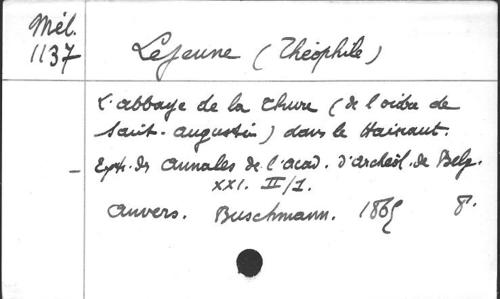 Mél.
1137
Lejeune (Théophile)
L'abbaye de la Thure (de l'ordre de
Saint-Augustin) dans le Hainaut.
Extr. des Annales de l'acad. d'archéol. de Belg.
XXI. II/1.
Anvers. Buschmann. 1865 8°.